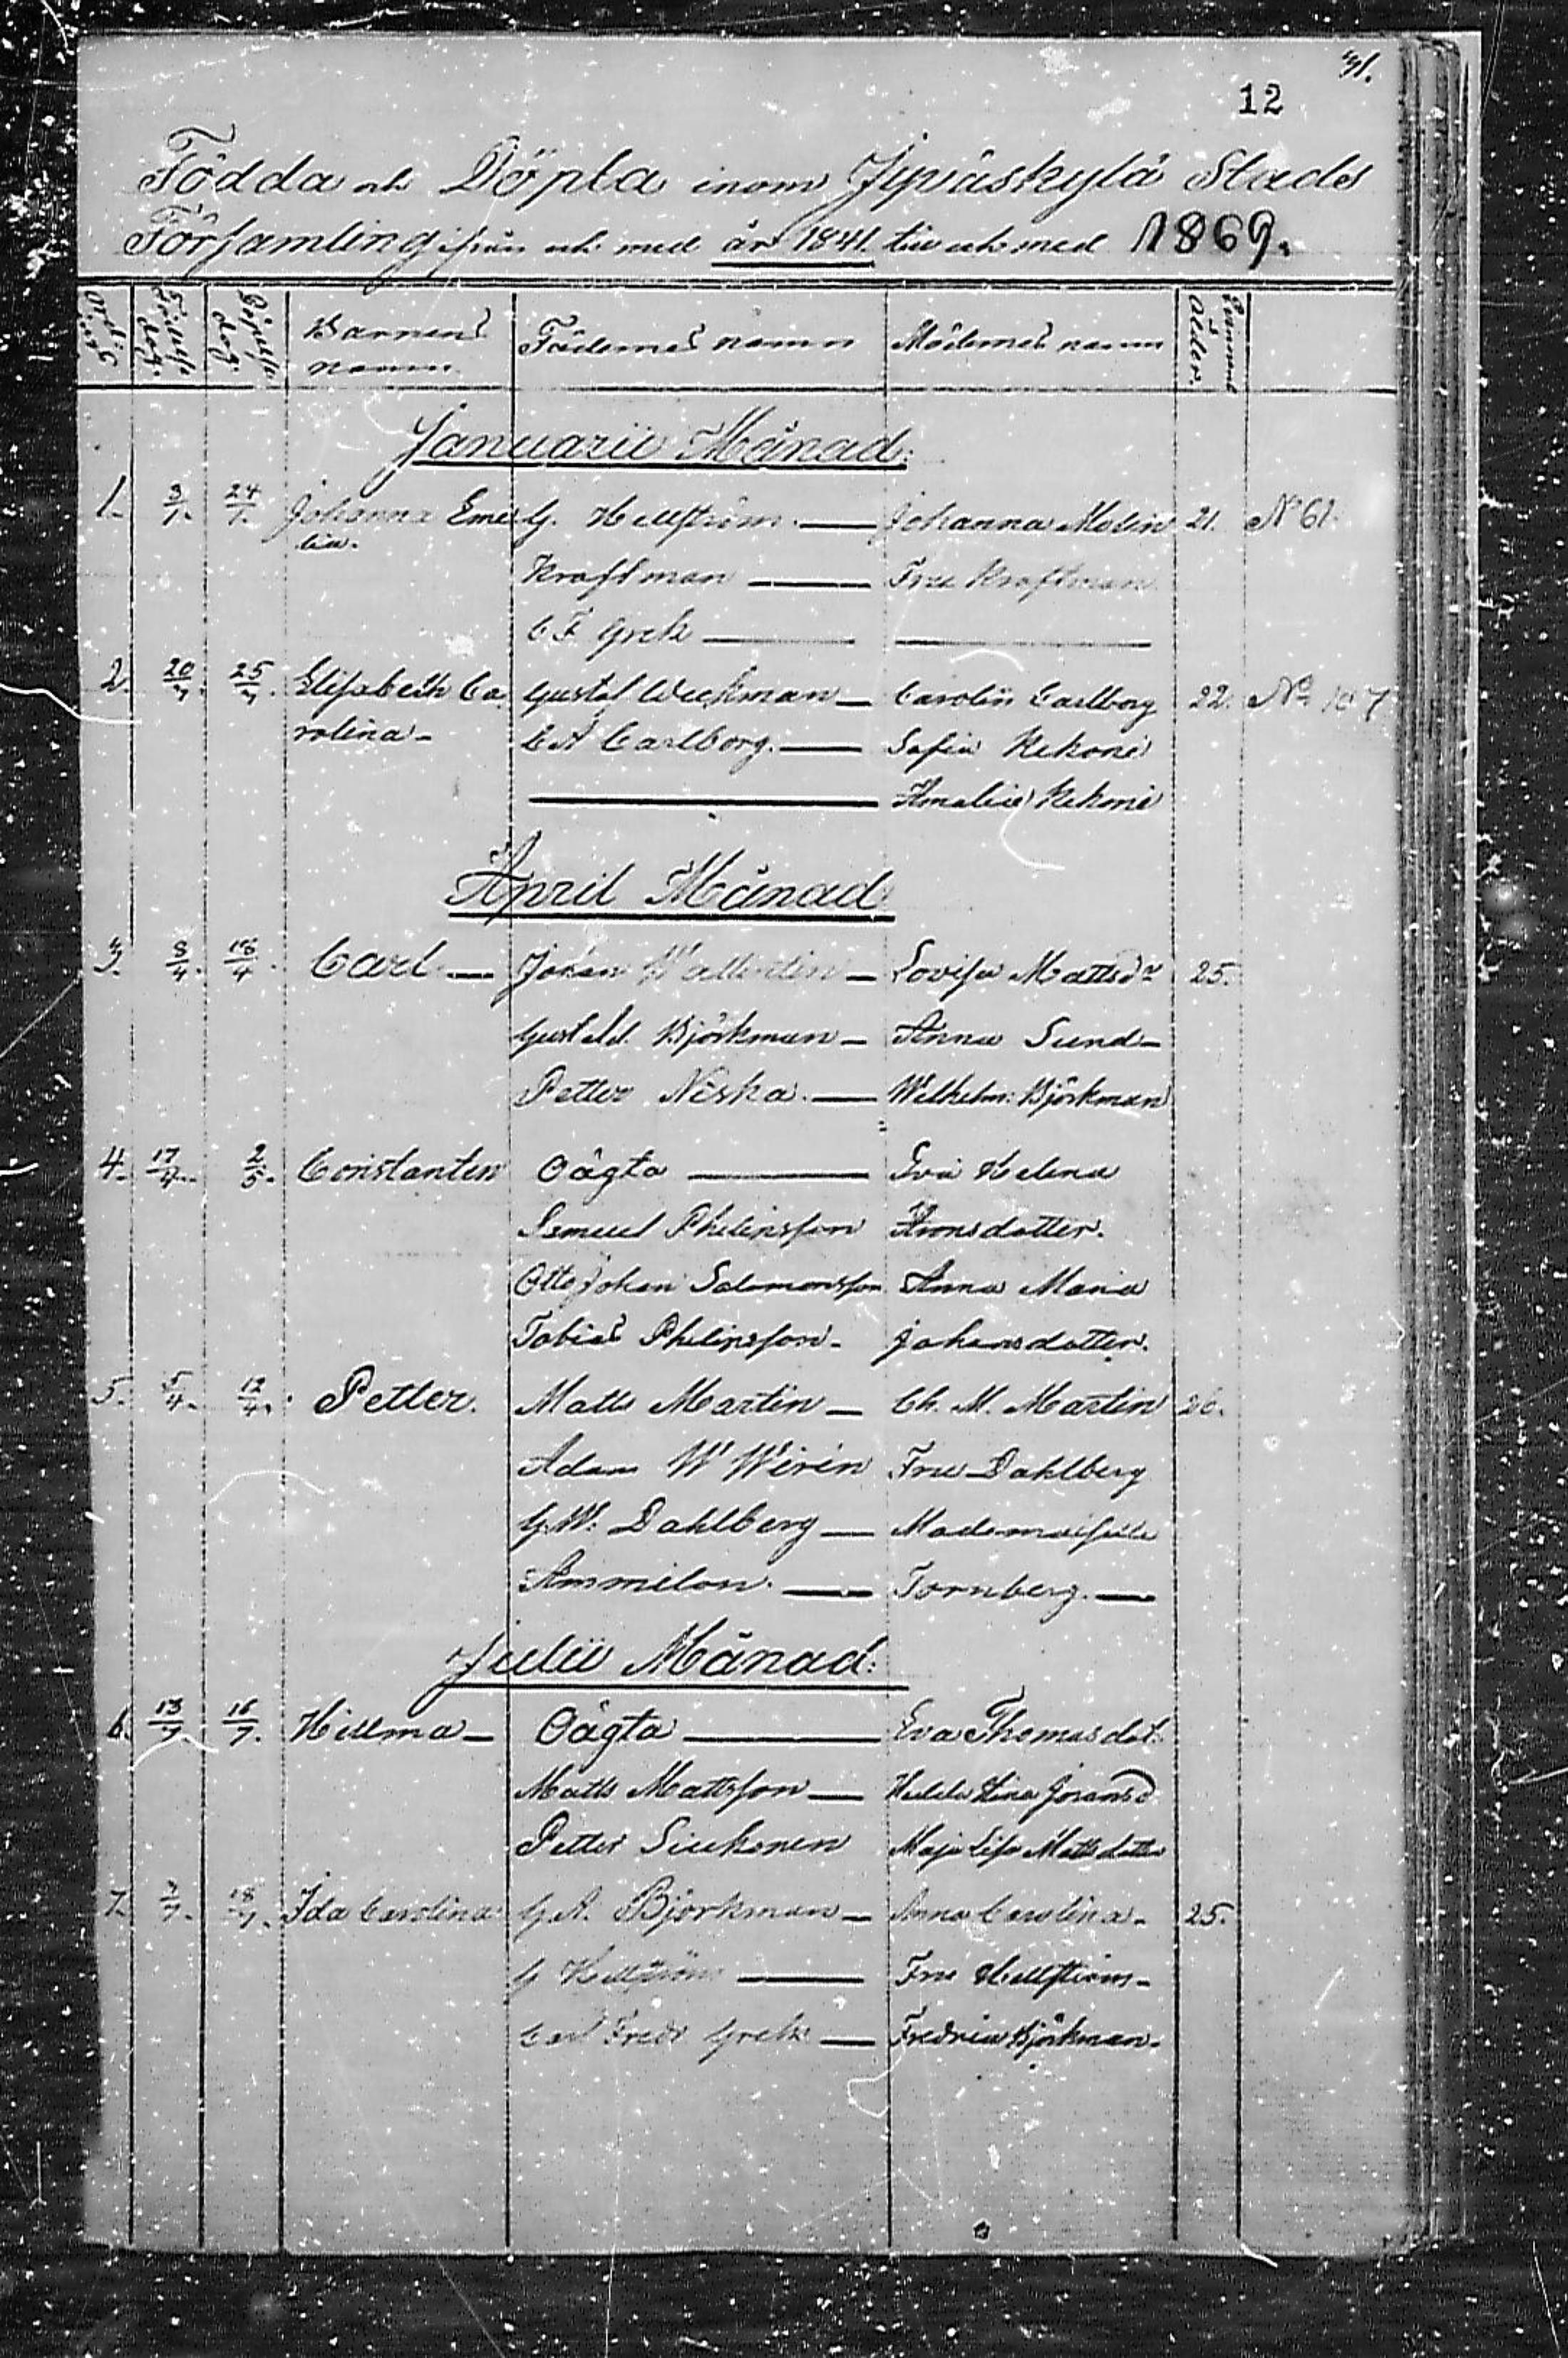 31.
12
Födda och Döpta inom Jyväskylä Stads
Församling ifrån och med år 1841 till och med 1869.
Födelse dag. Döpelse dag. Barnens namn Fädernes namn Mödernes namn Qvinnans Ålder.
Januarii Månad:
1. 3/1. 24/1. Johanna Eme- G. Hellström — Johanna Molin 21. No 61.
lia. Kraftman — Fru Kraftman
C F Grek —
2. 20/1. 25/1. Elisabeth Ca- Gustaf Weckman — Carolin Carlborg 22. No 107
rolina — C A Carlborg. — Sofia Kekoni
— Amalia Kekoni
April Månad
3. 8/4. 18/4. Carl — Johan Wallentin — Lovisa Mattsdr 25.
Gust Ad. Björkman — Anna Sund —
Petter Niska. — Wilhelm: Björkman
4. 17/4. 2/5. Constantin Oägta — Eva Helena
Samuel Philipsson Aronsdotter.
Otto Johan Salomonsson Anna Maria
Tobias Philipsson — Johansdotter.
5. 5/4. 12/4. Petter. Matts Martin — Ch. M. Martin 26.
Adam W Wirén Fru Dahlberg
G. W. Dahlberg — Mademoiselle
Ammilon. — Tornberg. —
Julii Månad:
6. 13/7. 16/7. Hillma — Oägta — Eva Thomasdot.
Matts Mattsson — Hedda Lina Joransd
Petter Siukonen Maja Lisa Mattsdotter
7. 7/7. 18/7. Ida Carolina G. A. Björkman — Anna Carolina — 25.
G Hellström — Fru Hellström —
Carl Fredr Grek — Fredrica Björkman.